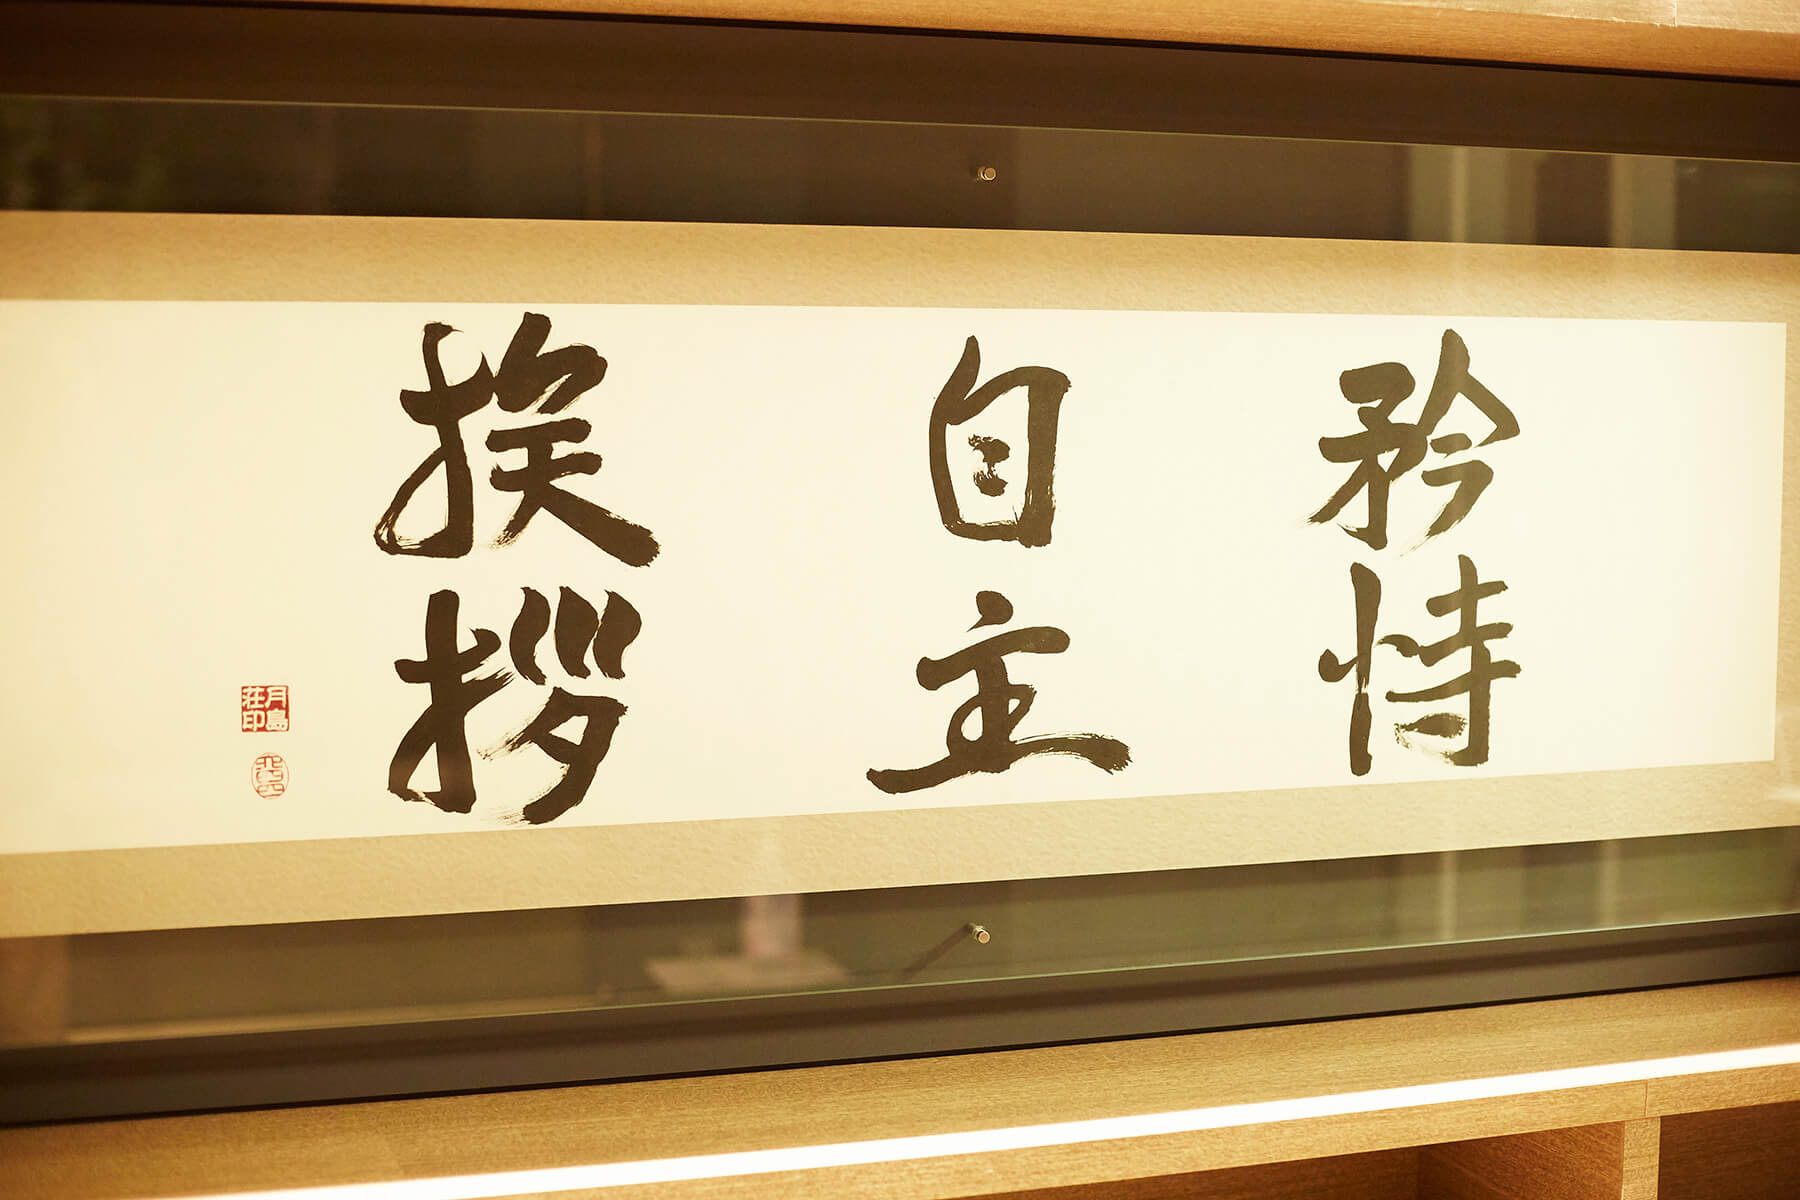 矜恃
自主
挨拶
月島
荘印